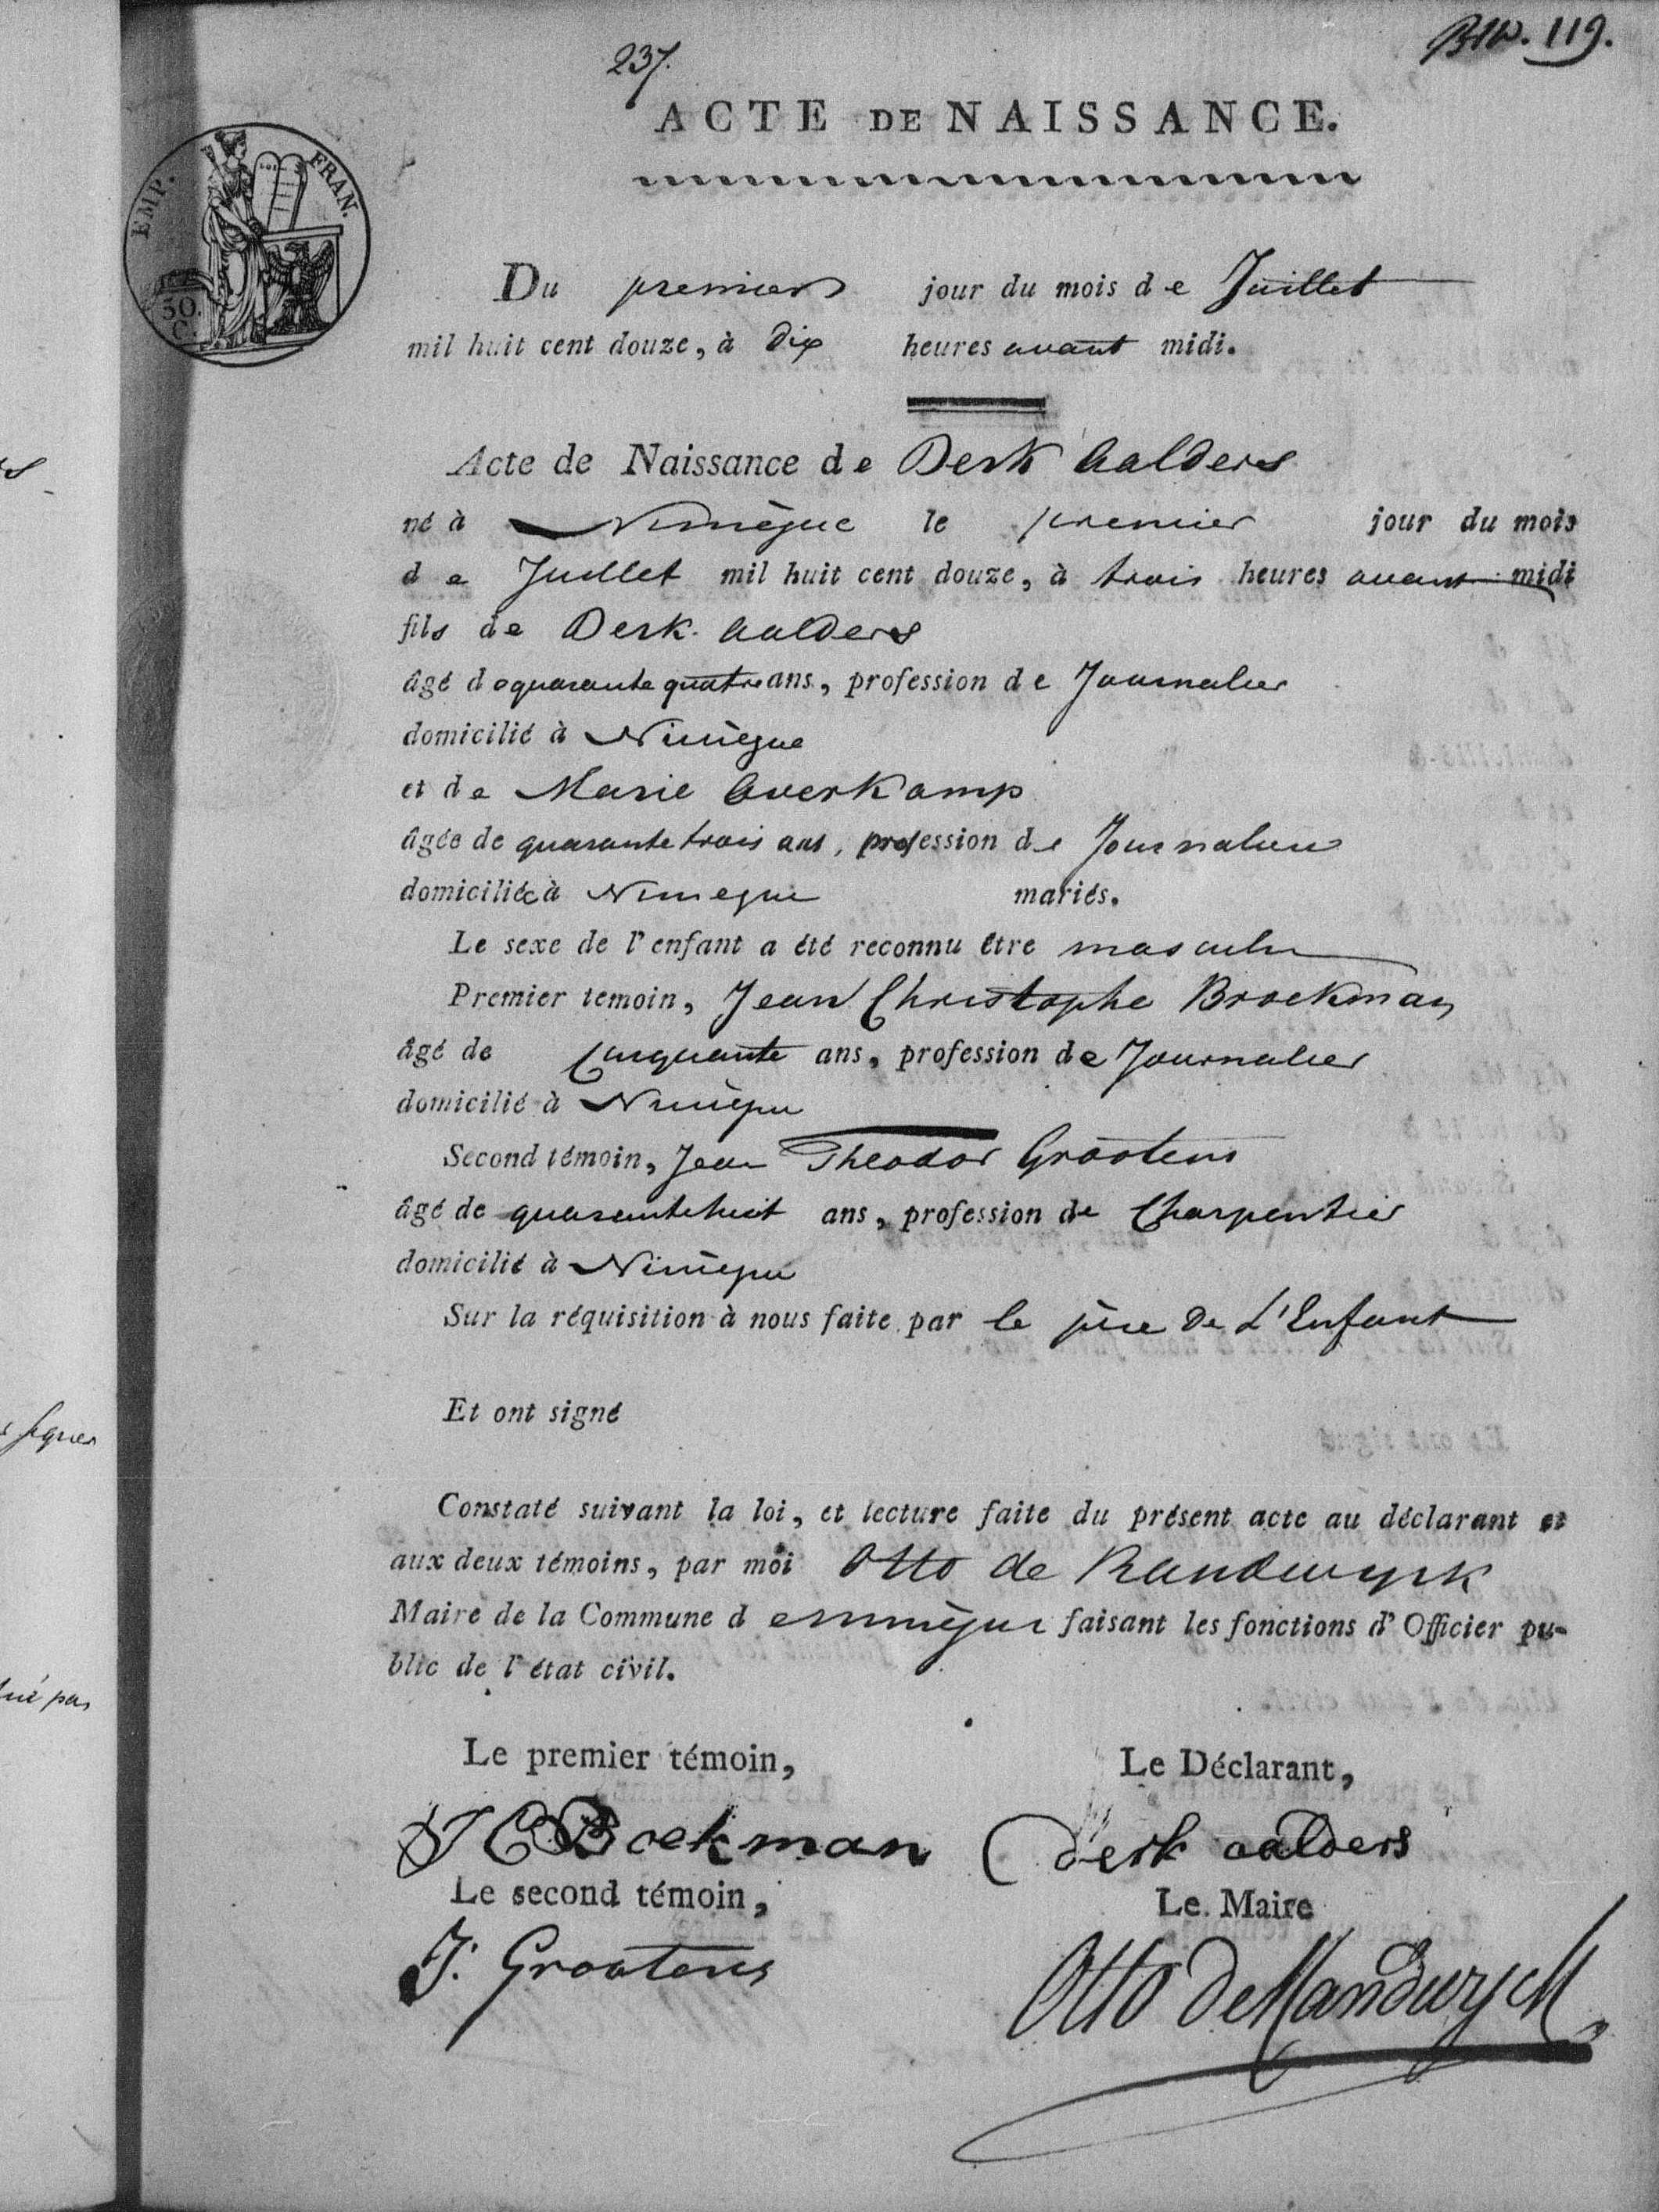 237.
Blw. 119.
ACTE DE NAISSANCE.
EMP. FRAN.
50.
C.
Du premier jour du mois de Juillet
mil huit cent douze, à dix heures avant midi.
Acte de Naissance de Derk Aalders
né à Nimègue le premier jour du mois
de Juillet mil huit cent douze, à trois heures avant midi
fils de Derk Aalders
âgé de quarante quatre ans, profession de Journalier
domicilié à Nimègue
et de Marie Averkamp
âgée de quarante trois ans, profession de Journaliere
domiciliée à Nimegue mariés.
Le sexe de l'enfant a été reconnu être masculin
Premier temoin, Jean Christophe Broekman
âgé de Cinquante ans, profession de Journalier
domicilié à Nimègue
Second témoin, Jean Theodor Grootens
âgé de quarante huit ans, profession de Charpentier
domicilié à Nimègue
Sur la réquisition à nous faite par le père de L'Enfant
Et ont signé
Constaté suivant la loi, et lecture faite du présent acte au déclarant et
aux deux témoins, par moi Otto de Randwyck
Maire de la Commune de Nimègue faisant les fonctions d'Officier pu-
blic de l'état civil.
Le premier témoin, Le Déclarant,
J C Broekman derk aalders
Le second témoin, Le Maire
J. Grootens Otto de Randwyck
signer
pas